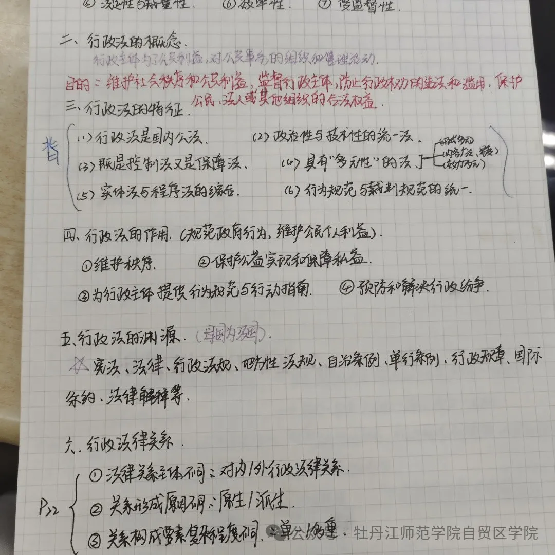 ⑤ 法定性与裁量性. ⑥ 效率性. ⑦ 受监督性.
二、行政法的概念.
目的：维护社会秩序和公共利益，监督行政主体，防止行政权力的违法和滥用，保护
公民、法人或其他组织的合法权益.
三、行政法的特征.
(1) 行政法是国内公法. (2) 政治性与技术性的统一法.
(3) 既是控制法又是保障法. (4) 具有"多元性"的法
(5) 实体法与程序法的综合. (6) 行为规范与裁判规范的统一.
四、行政法的作用.（规范政府行为，维护公民个人利益）.
①维护秩序. ②保护公益实现和保障私益.
③为行政主体提供行为规范与行动指南. ④预防和解决行政纷争.
五、行政法的渊源.
☆ 宪法、法律、行政法规、地方性法规、自治条例、单行条例、行政规章、国际
条约、法律解释等.
六、行政法律关系
① 法律关系主体不同：对内/外行政法律关系.
P22 ② 关系形成原因不同：原生/派生
③ 关系构成要素复杂程度不同：单一/多重.
公众号 · 牡丹江师范学院自贸区学院